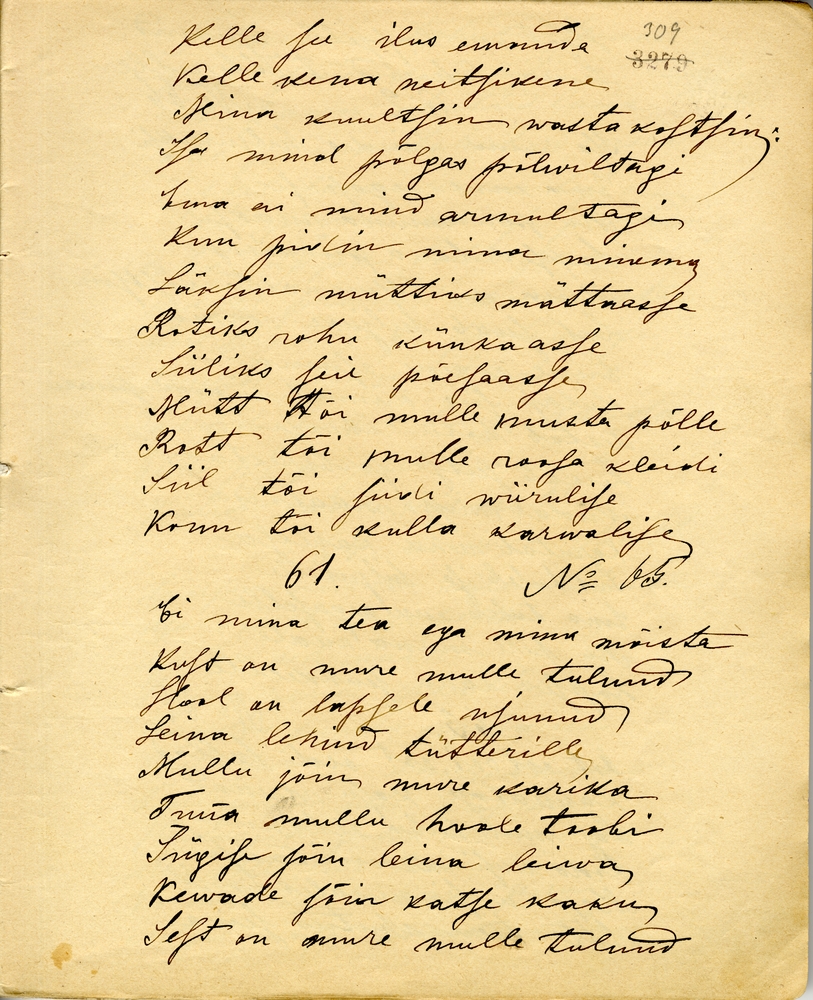 309
3279
Kelle see ilus emanda
Kelle kena neitsikene
Mina kuultsin wasta kostsin:
Isa mind põlgas põlwiltagi
Ema ei mind armultagi
Kun pidin mina minema
Läksin müttiks mättaasse
Rotiks rohu künkaasse
Siiliks seie põesaasse
Mütt tõi mulle musta põlle
Rott tõi mulle roosa kleidi
Siil tõi siidi wiirulise
Konn tõi kulla karwalise
61. № 65.
Ei mina tea ega minu mõista
Kust on mure mulle tulnud
Hool on lapsele ujunud
Leina lehind tütterille
Mullu jõin mure karika
Tuna mullu hoole toobi
Sügise sõin leina leiwa
Kewade sõin katse kaku
Sest on mure mulle tulnud